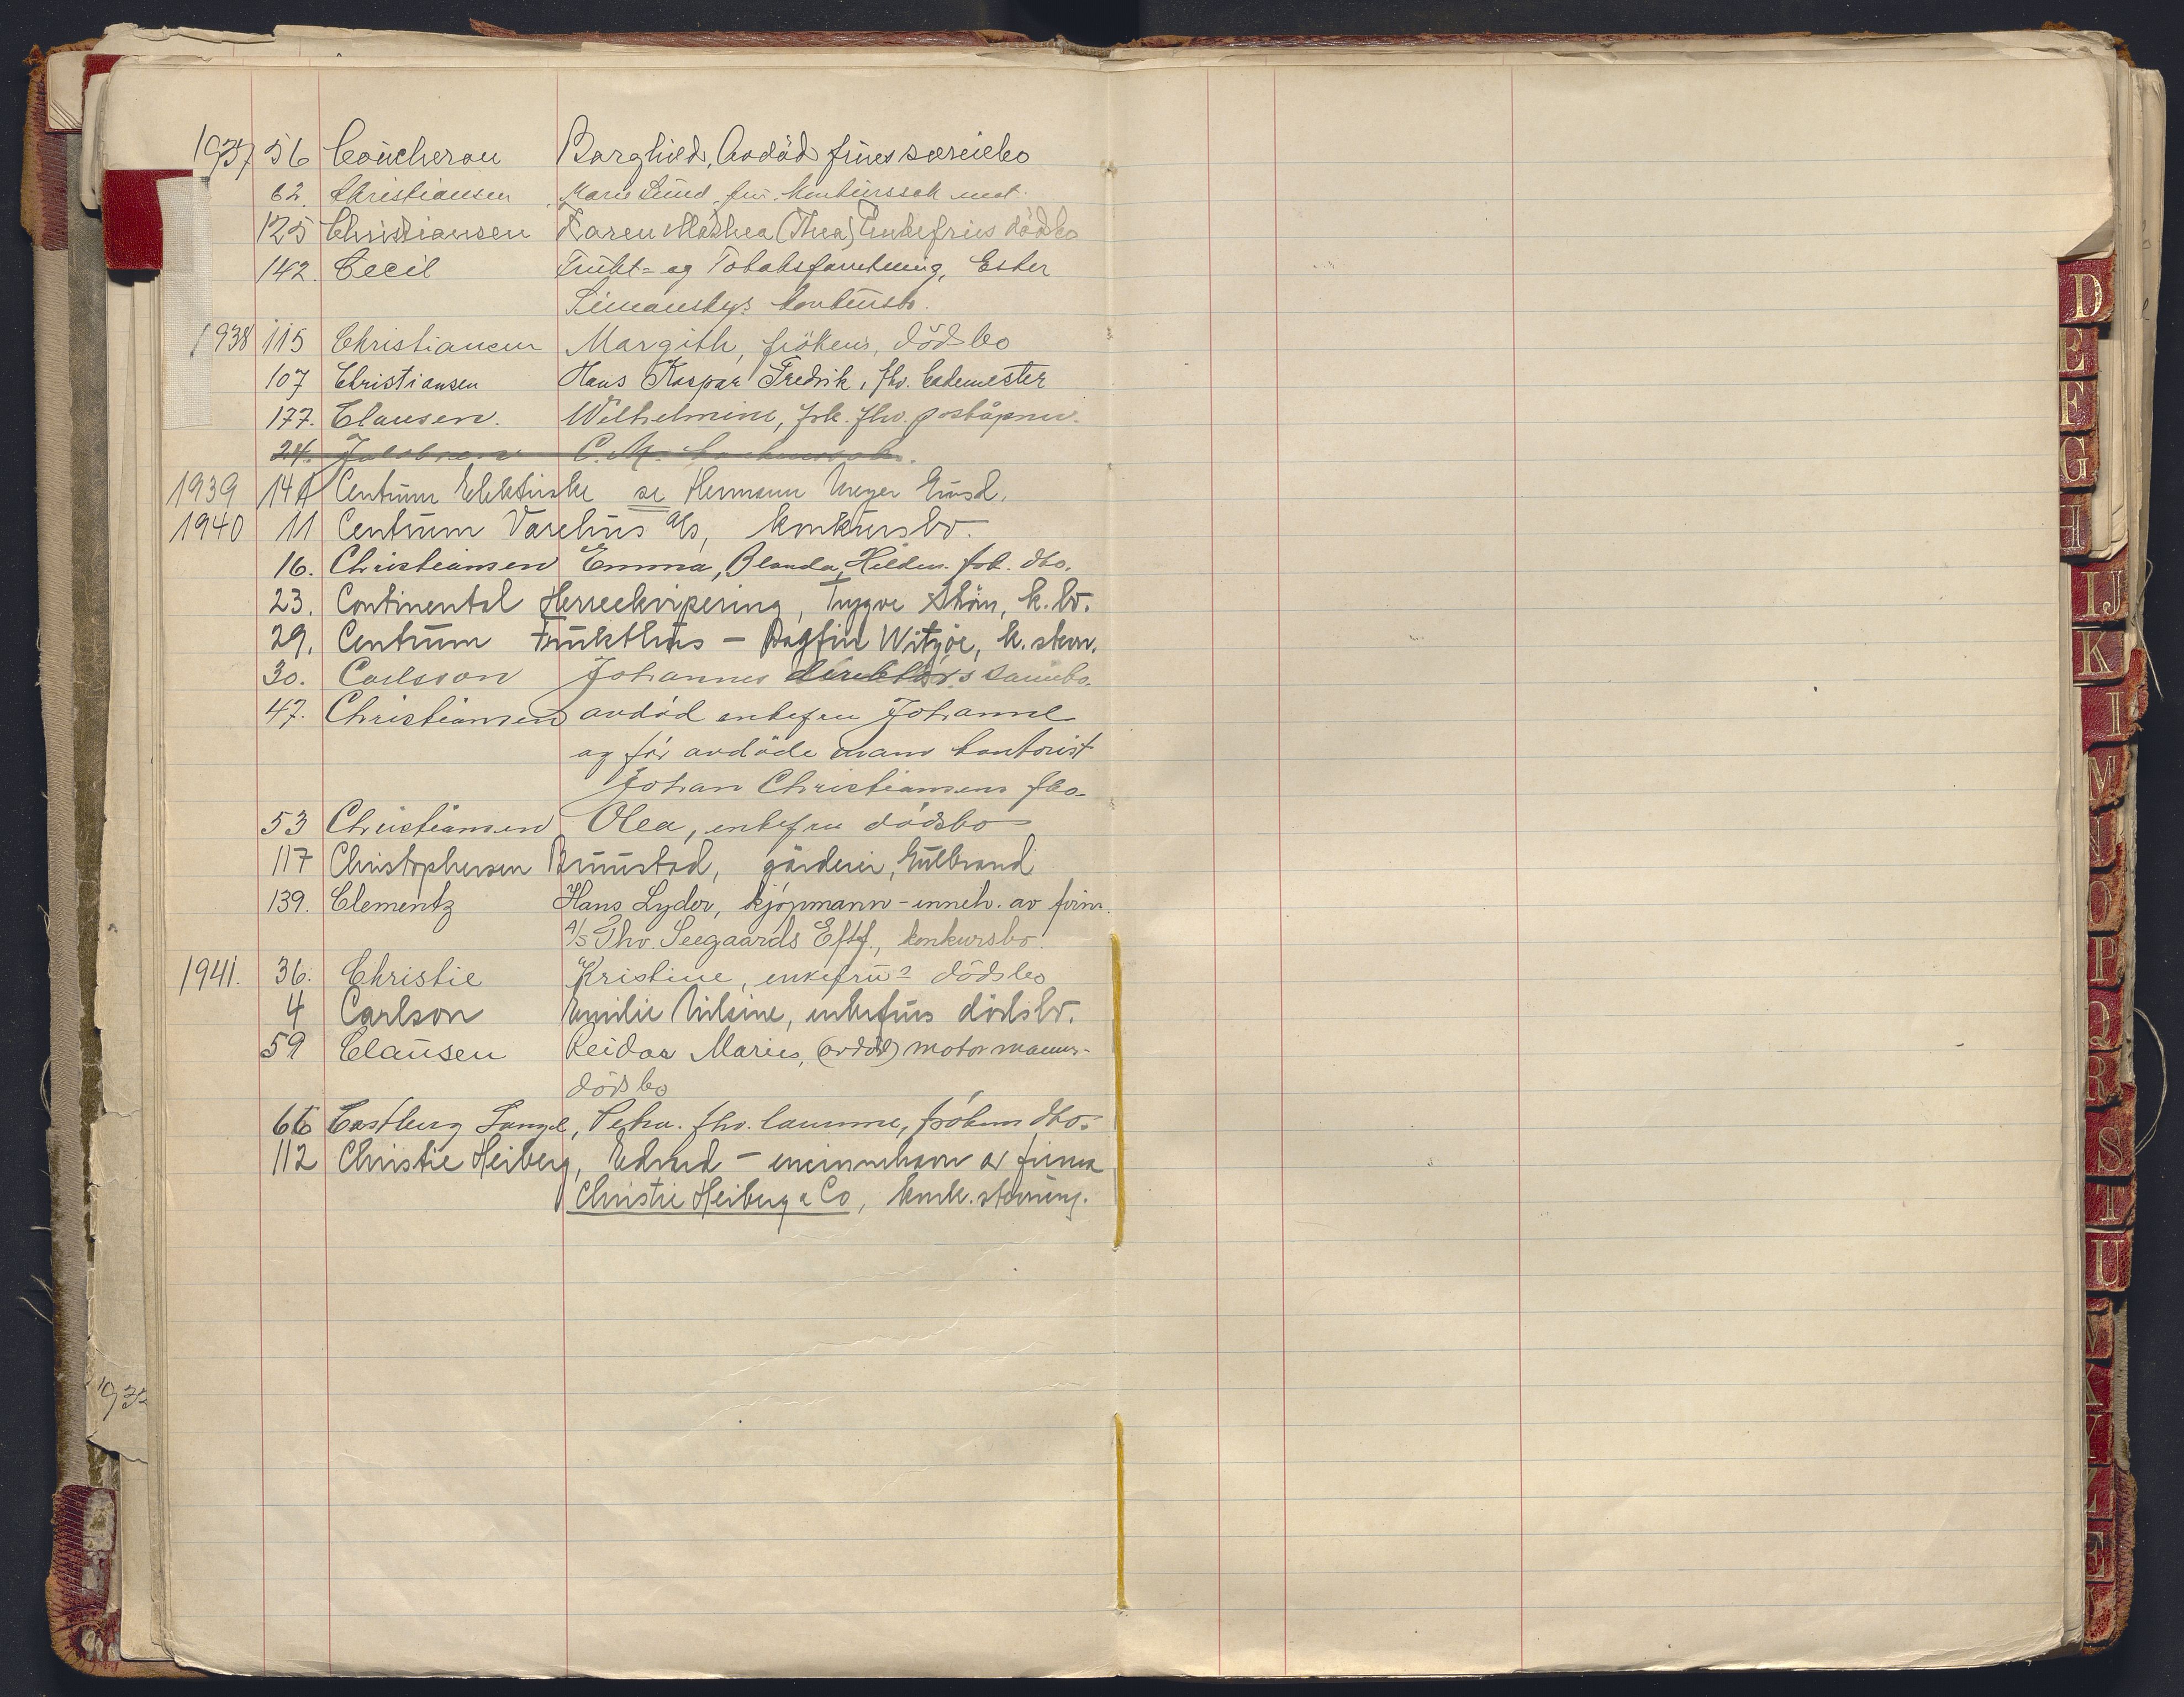 1937 56 Coucheron Borghild, Avdöd frues særeiebo
62. Christiansen Marie Lund fru. konkurssak
125 Christiansen Karen Mathea (Thea) Enkefrus dödsbo
142. Cecil Frukt- og Tobaksforretning, Ester
Simanskys konkursb.
1938 115 Christiansen Margith, frökens, dödsbo
107 Christiansen Hans Kaspar Fredrik, fhv. bademester
177. Clausen. Wilhelmine, frk. fhv. poståpner.
24. Jakobsen C. M.
1939 14A Centrum Elektriske se Hermann Meyer Gusd.
1940 11 Centrum Varehus A/s, konkursbo.
16. Christiansen Emma, Blanda, Hilda. frk. dbo.
23. Continental Herreekvipering, Trygve Skön, k.bo.
29. Centrum Frukthus – Dagfin Witzöe, k. stevn.
30. Carlsson Johannes direktör's
47. Christiansen avdöd enkefru Johanne
og för avdöde mann kontorist
Johan Christiansens fbo.
53 Christiansen Olea, enkefru dödsbo
117 Christophersen Bruustad, gårdeier, Gulbrand
139. Clementz Hans Lyder, kjöpmann – inneh. av firm.
A/S Thv. Seegaards Eftf., konkursbo.
1941. 36. Christie Kristine, enkefrus dödsbo
4 Carlson Emilie Nilsine, enkefrus dödsbo.
59 Clausen Reidar Marius, (avdöd) motormanns-
dödsbo
66 Castberg Lange, Petra. fhv. lærerinne, frökens dbo.
112 Christie Heiberg, Edvard – eneinnehaver av firma
Christie Heiberg & Co, konk. stevning.
193
D
E
F
G
H
IJ
K
L
M
N
O
P
Q
R
S
T
U
V
X
Y
Z